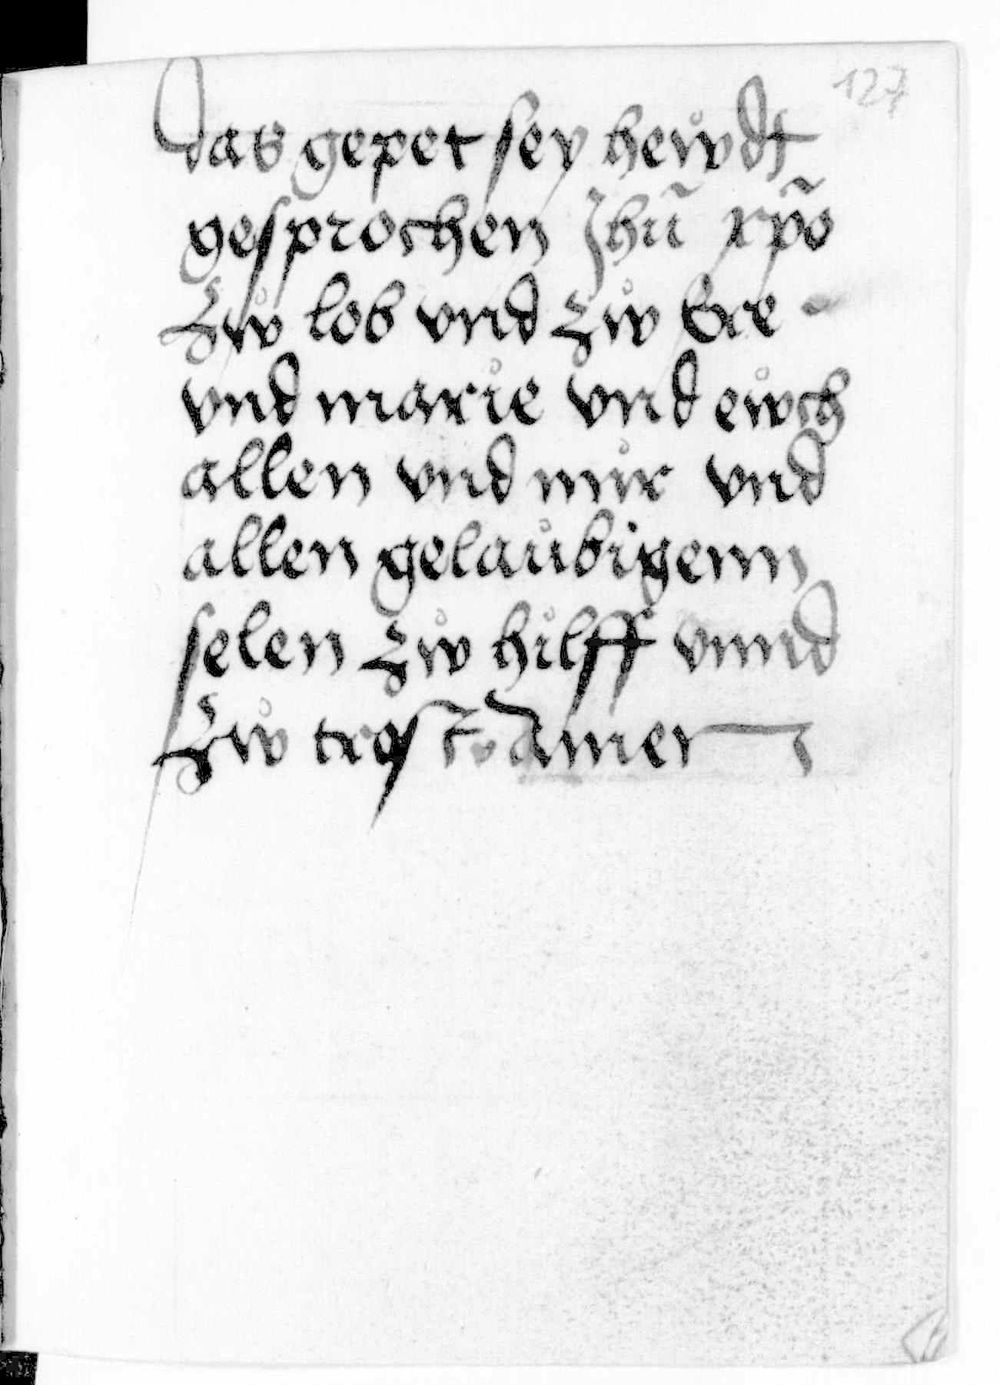 127
Das gepet sey hewdt
gesprochen Jhū xp̄o
Zẘ lob vnd zẘ Ere
vnd marie vnd ewch
allen vnd mir vnd
allen gelaubigenn
selen zẘ hilff vnnd
Zẘ trost Amen